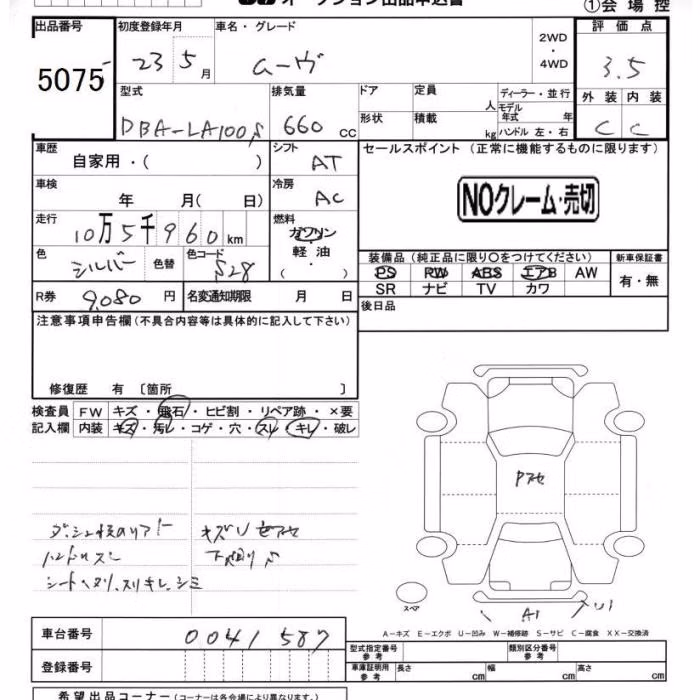 オークション出品申込書 ①会場控
出品番号 初度登録年月 車名・グレード 2WD・4WD 評価点
5075 23 5月 ムーヴ 3.5
型式 排気量 ドア 定員 人 ディーラー・並行 外装 内装
DBA-LA100S 660 cc 形状 積載 kg モデル年式 年 ハンドル 左・右 C C
車歴 自家用・( ) シフト AT セールスポイント (正常に機能するものに限ります)
車検 年 月(日) 冷房 AC NOクレーム・売切
走行 10万5千960km 燃料 ガソリン・軽油・( )
色 シルバー 色替 色コード S28
装備品 (純正品に限り○をつけてください) 新車保証書
PS PW ABS エアB AW 有・無
SR ナビ TV カワ
R券 9,080円 名変通知期限 月 日 後日品
注意事項申告欄(不具合内容等は具体的に記入して下さい)
修復歴 有 〔箇所 〕
検査員 FW キズ・飛石・ヒビ割・リペア跡・×要
記入欄 内装 キズ・汚レ・コゲ・穴・スレ・キレ・破レ
キズU セアセ
ハンドルスレ 下廻りS
シートヘタリ、スリキレ、シミ
Pアセ
スペア
A1 U1
A-キズ E-エクボ U-凹み W-補修跡 S-サビ C-腐食 XX-交換済
車台番号 0041587
登録番号
型式指定番号 参考 類別区分番号 参考
車庫証明用 参考 長さ cm 幅 cm 高さ cm
希望出品コーナー(コーナーは各会場により異なります。)